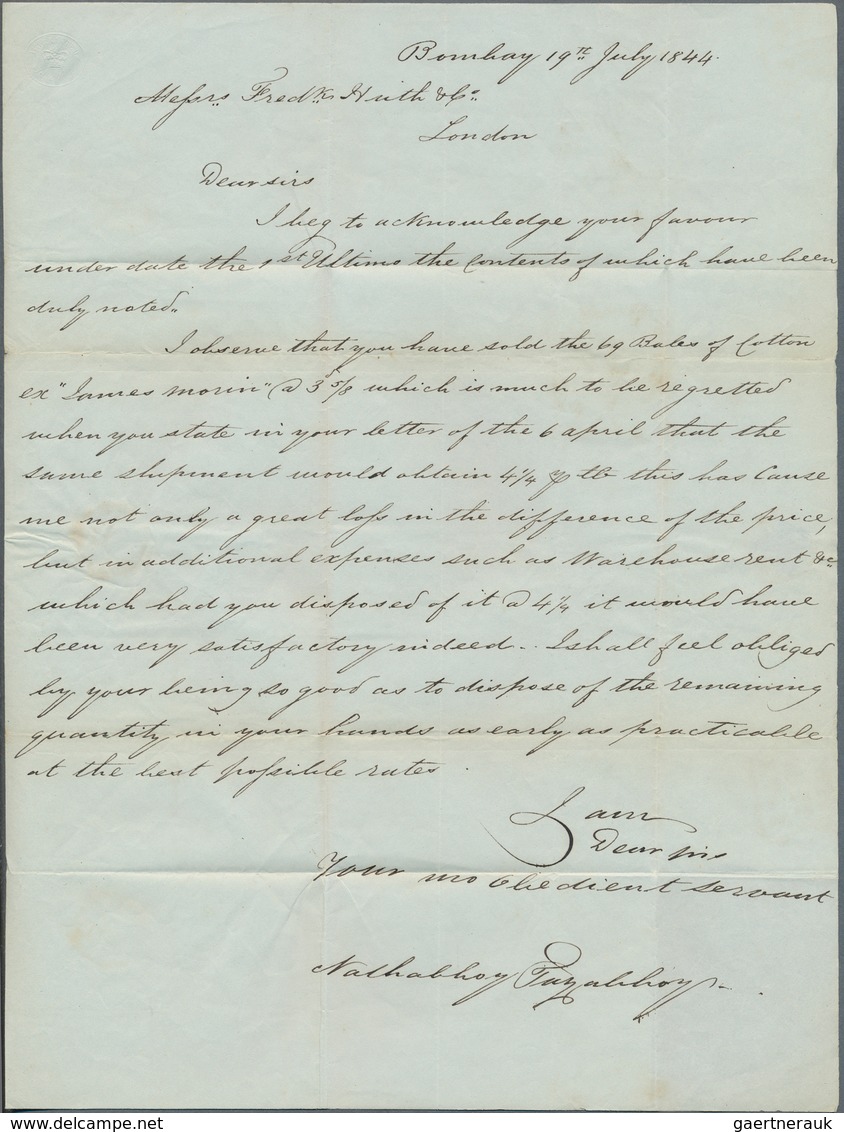 Bombay 19th July 1844.
Messrs. Fredk. Huth & Co.
London
Dear sirs
I beg to acknowledge your favour
under date the 1st Ultimo the Contents of which have been
duly noted.
I observe that you have sold the 69 Bales of Cotton
ex "James Morin" @ 3 5/8 which is much to be regretted
when you state in your letter of the 6 april that the
same shipment would obtain 4 1/4 ℔ this has Cause
me not only a great loss in the difference of the price,
but in additional expenses such as Warehouse rent &c
which had you disposed of it @ 4 1/4 it would have
been very satisfactory indeed.. I shall feel obliged
by your being so good as to dispose of the remaining
quantity in your hands as early as practicable
at the best possible rates.
I am
Dear sirs
Your mo Obedient servant
Nathabhoy
delcampe.net
gaertnerauk